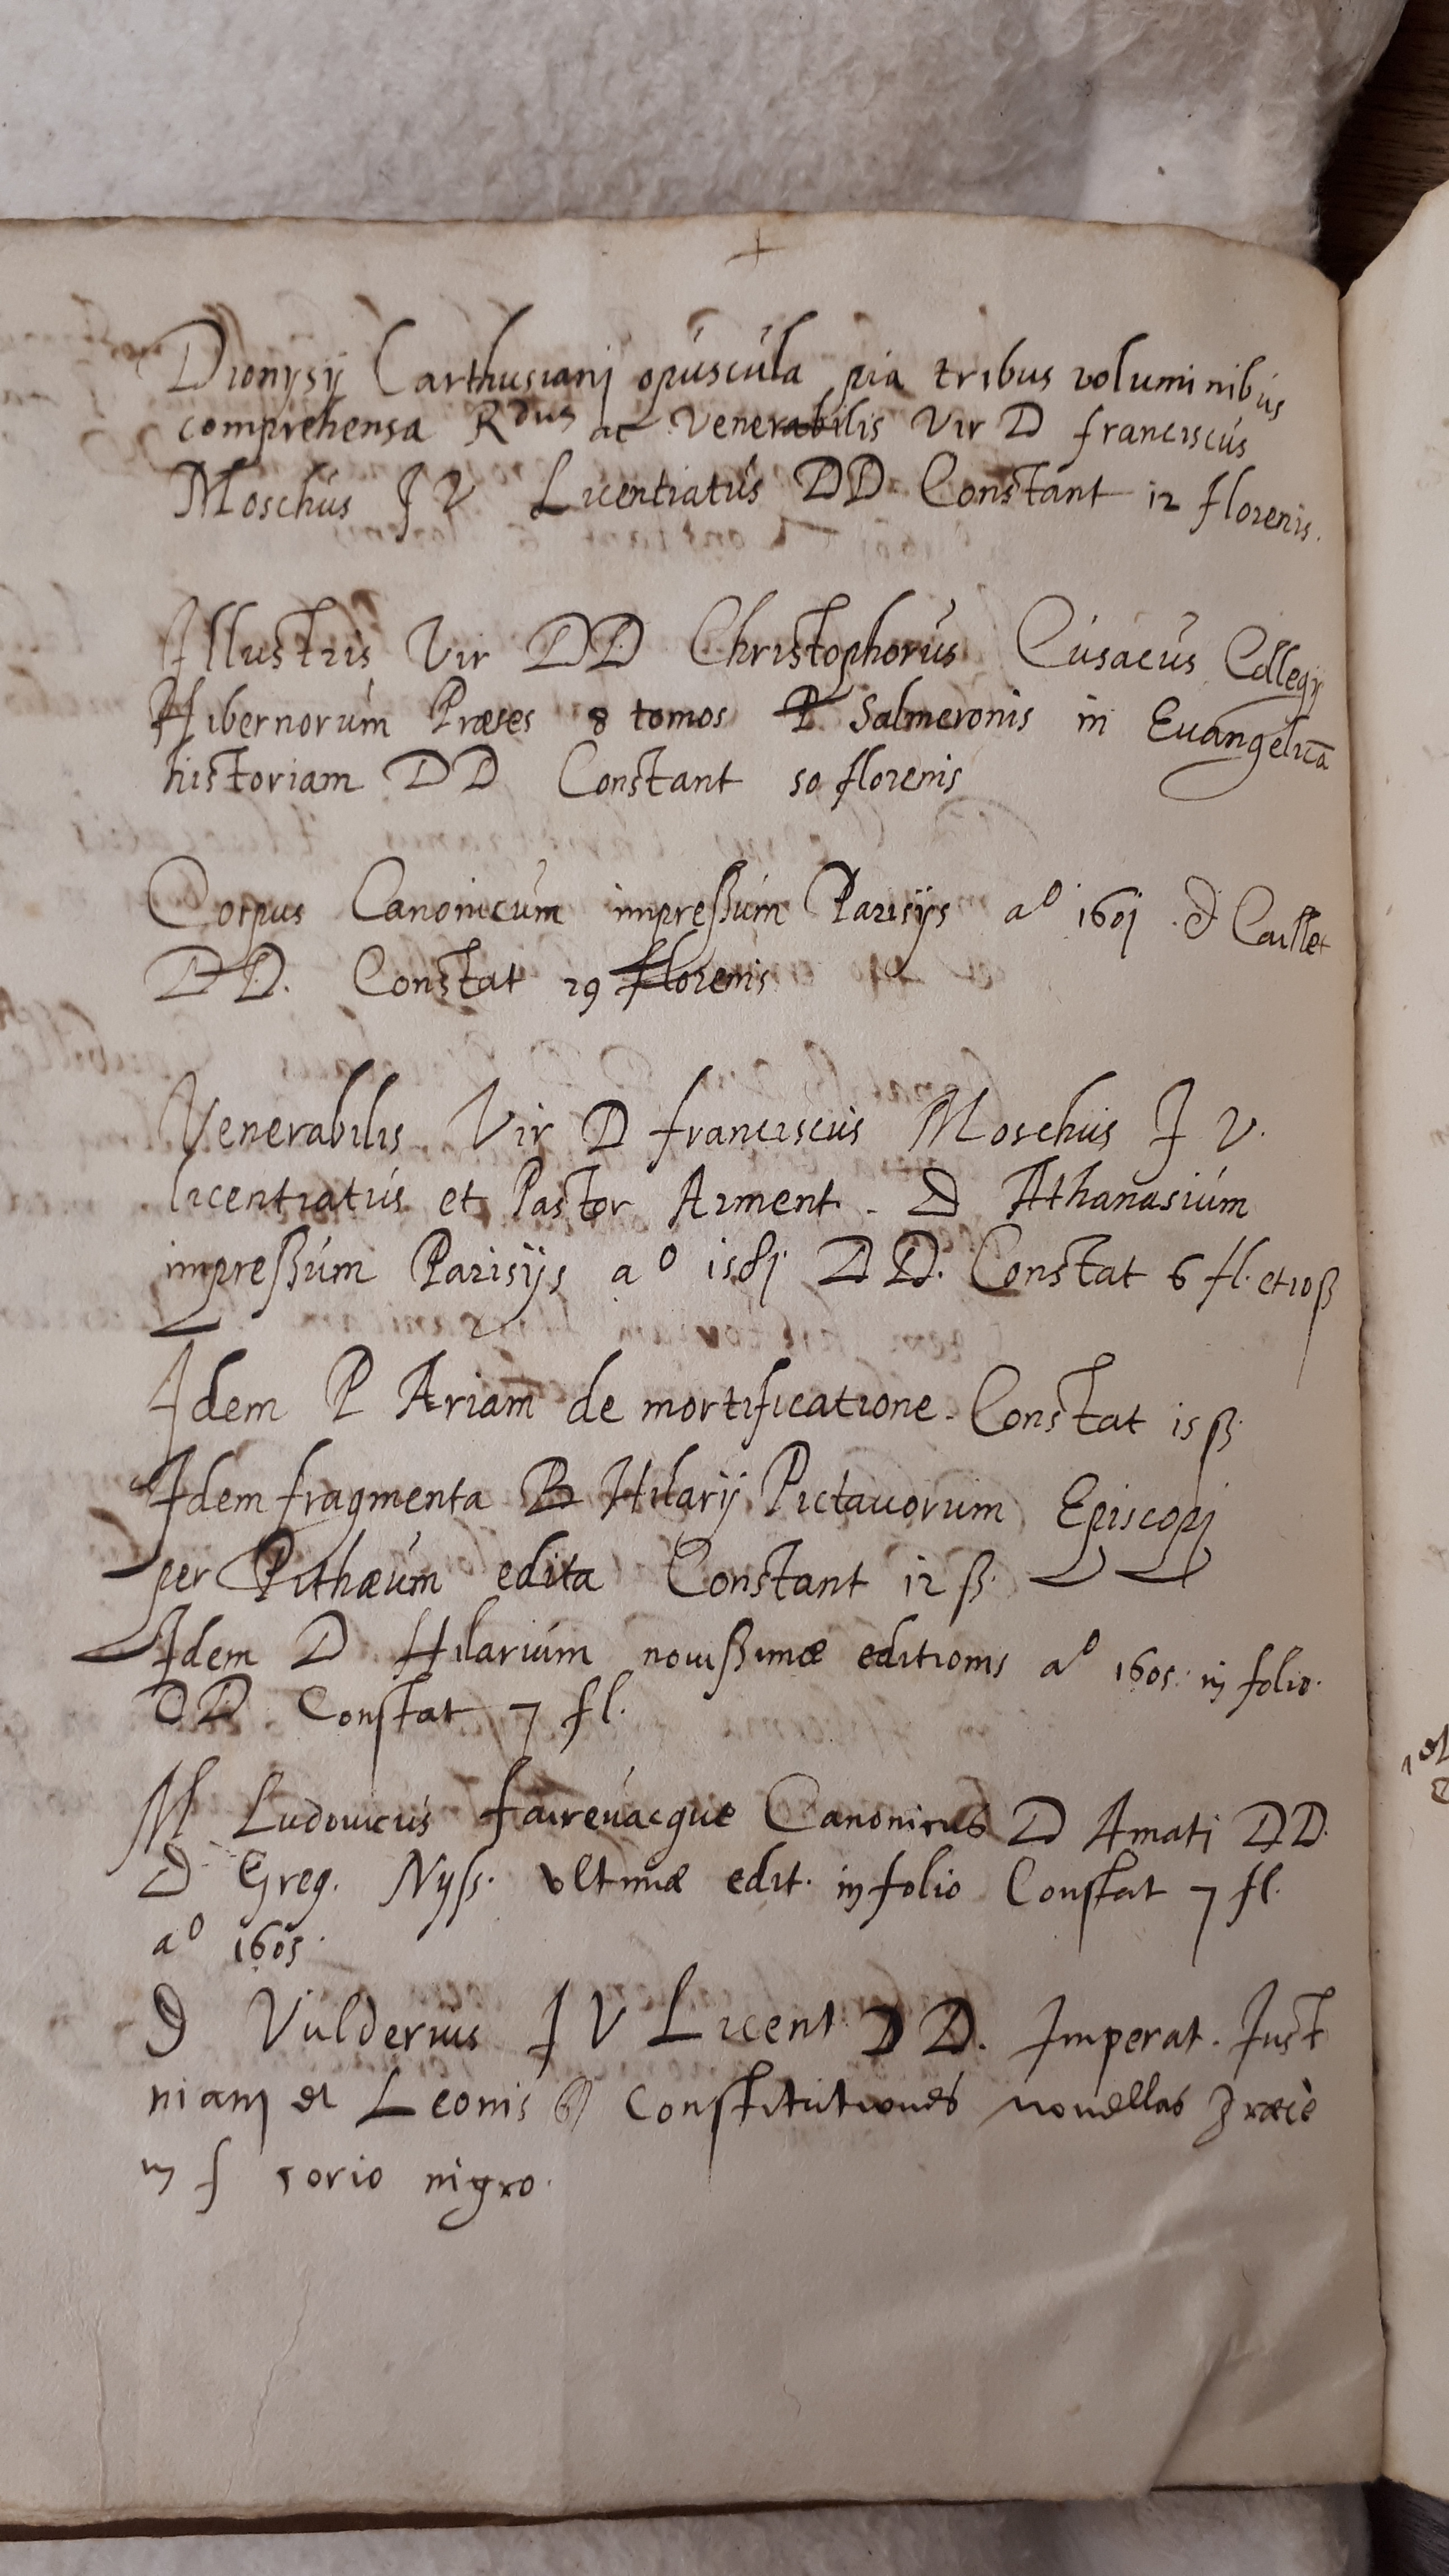 +
Dionysij Carthusianj opuscula pia tribus voluminibus
comprehensa Rdus ac Venerabilis Vir D franciscus
Moschus J V Licentiatus DD Constant 12 florenis.
Illustris Vir DD Christophorus Cusacus Collegij
Hibernorum Præses 8 tomos P Salmeronis in Euangelicā
historiam DD Constant 50 florenis
Corpus Canonicum impreßum Parisijs ao 1601 d Caillet
DD. Constat 29 florenis
Venerabilis Vir D franciscus Moschus J V.
licentiatus et Pastor Arment. D Athanasium
impreßum Parisijs ao 1581 DD. Constat 6 fl. et 10 ß
Idem P Ariam de mortificatione. Constat 15 ß.
Idem fragmenta B Hilarij Pictauorum Episcopj
per Pithæum edita Constant 12 ß. DD
Idem D Hilarium nouißimæ editionis ao 1605. in folio.
DD Constat 7 fl.
M Ludouicus faureuacque Canonicus D Amati DD.
D Greg. Nyss. vltimæ edit. in folio Constat 7 fl.
ao 1605.
D Vulderius J V Licent DD. Imperat. Just
niani et Leonis Constitutiones nouellas græcè
in f corio nigro.